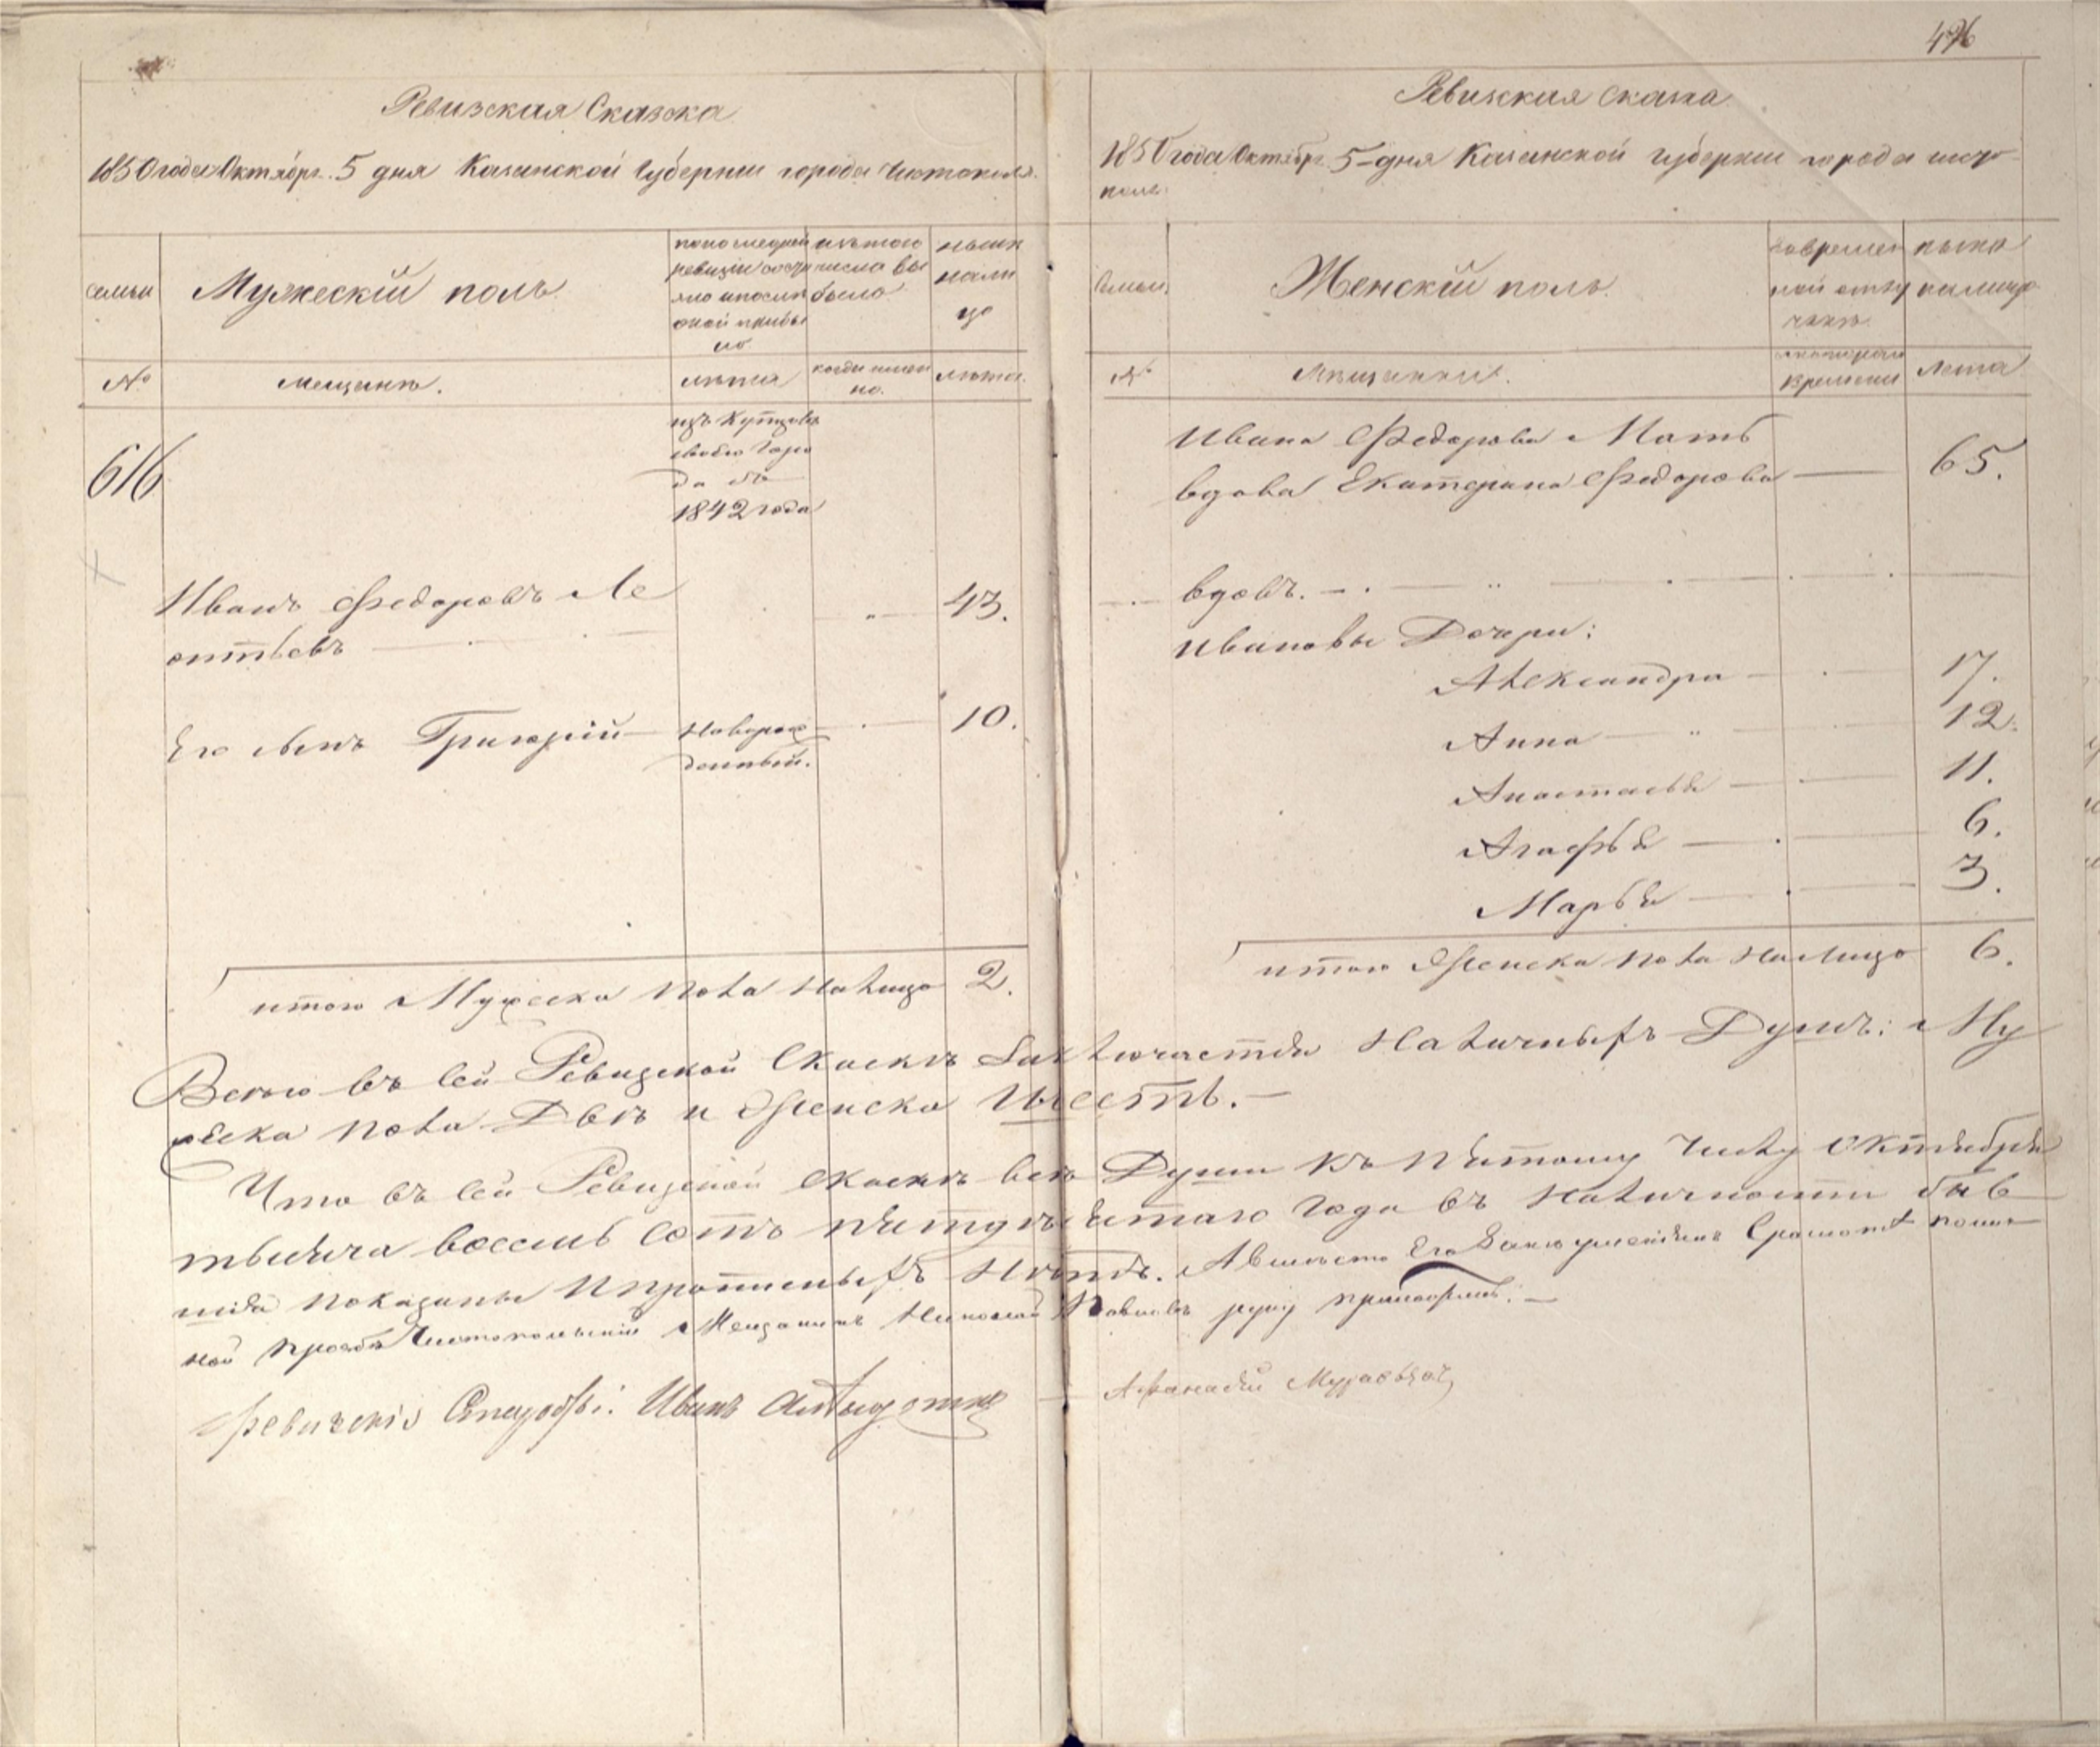 Ревизская Сказка
1850 года Октября 5 дня Казанской Губернии города Чистополя.
семьи
Мужескій полъ
по последней
ревизіи состо
яло и после
оной прибы
ло
изъ того
числа вы
было
ныне
нали
цо
№
мещане.
лѣта
когда имен
но.
лѣта.
616
изъ Купцовъ
своего Горо
да съ
1842 года
Иванъ Федоровъ Ле
онтьевъ
43.
Его сынъ Григорій
Новорож
денный.
10.
итого Мужеска пола налицо 2.
496
Ревизская сказка
1850 года Октября 5 дня Казанской губернии города чисто
поля.
Семьи.
Женскій полъ.
во времен
ной отлу
чкѣ
ныне
налицо
№
Мещанки.
с котораго
времени
Лета
Ивана Федорова Мать
вдова Екатерина Федорова 65.
вдовъ.
Ивановы Дочери:
Александра 17.
Анна 12.
Анастасья 11.
Агафья 6.
Марья 3.
итого Женска пола налицо 6.
Всего въ сей Ревизской Сказкѣ Заключается Наличныхъ Душъ: Му
жеска пола Двѣ и Женска Шесть.
Что въ сей Ревизской сказкѣ все Души къ пятому Числу Октября
тысяча восемь сотъ пятидесятаго Года въ Наличности быв
шія показаны и пропменыхъ Нѣтъ. А вместо Его Занеумениемъ Грамоте полич
ной прозбе Чистопольский Мещанинъ Николай Павловъ руку приложилъ.
Ревизскія Иванъ
Афанасій